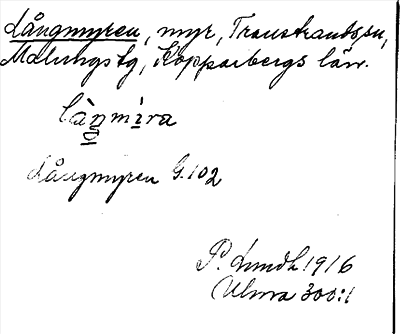 Långmyren, myr, Transtrands sn,
Malungs tg, Kopparbergs län.
làŋmìra
Långmyren G. 102
P. Lundh 1916
Ulma 300:1